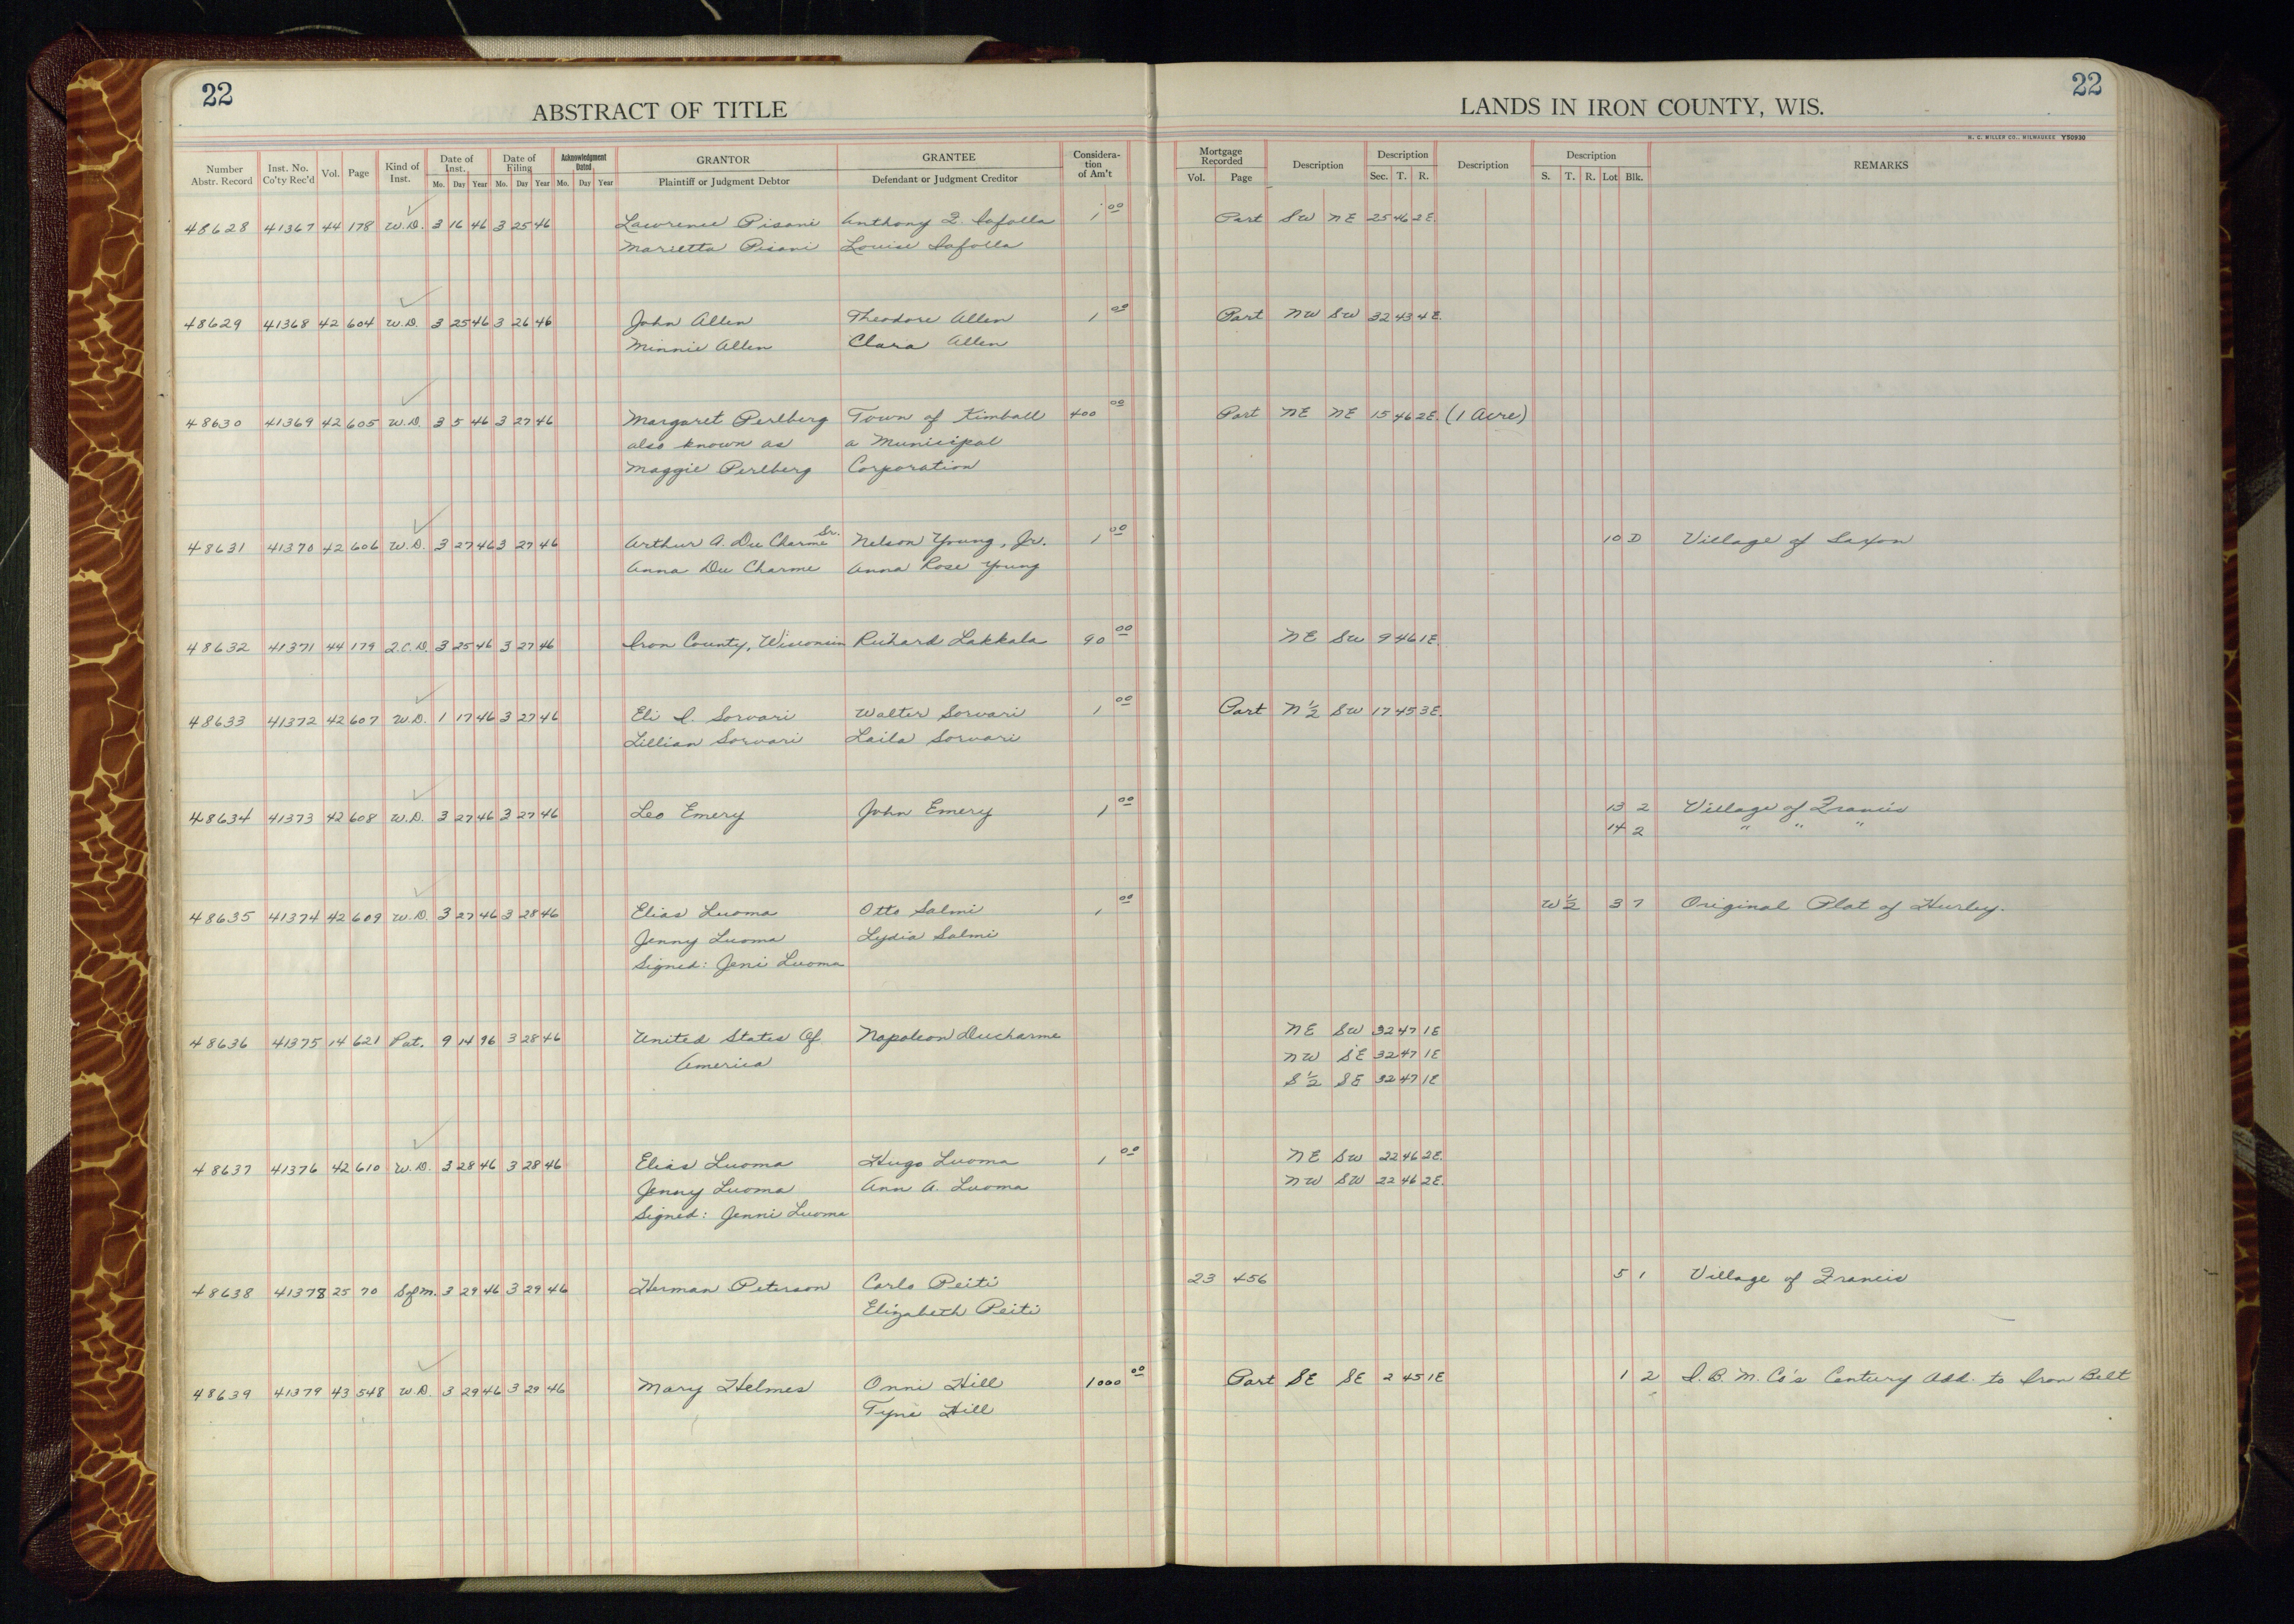 22
ABSTRACT OF TITLE
LANDS IN IRON COUNTY, WIS.
22
H. C. MILLER CO., MILWAUKEE Y50930
Number Abstr. Record | Inst. No. Co'ty Rec'd | Vol. | Page | Kind of Inst. | Date of Inst. Mo. Day Year | Date of Filing Mo. Day Year | Acknowledgment Dated Mo. Day Year | GRANTOR Plaintiff or Judgment Debtor | GRANTEE Defendant or Judgment Creditor | Consideration of Am't | Mortgage Recorded Vol. Page | Description | Description Sec. T. R. | Description | Description S. T. R. Lot Blk. | REMARKS
48628 41367 44 178 W.D. 3 16 46 3 25 46 Lawrence Pisani Anthony F. Iafolla 1 00 Part SW NE 25 46 2E.
Marietta Pisani Louise Iafolla
48629 41368 42 604 W.D. 3 25 46 3 26 46 John Allen Theodore Allen 1 00 Part NW SW 32 43 4E.
Minnie Allen Clara Allen
48630 41369 42 605 W.D. 3 5 46 3 27 46 Margaret Perlberg Town of Kimball 400 00 Part NE NE 15 46 2E. (1 Acre)
also known as a Municipal
Maggie Perlberg Corporation
48631 41370 42 606 W.D. 3 27 46 3 27 46 Arthur A. Du Charme Sr. Nelson Young, Jr. 1 00 10 D Village of Saxon
Anna Du Charme Anna Rose Young
48632 41371 44 179 Q.C.D. 3 25 46 3 27 46 Iron County, Wisconsin Richard Lakkala 90 00 NE SW 9 46 1E.
48633 41372 42 607 W.D. 1 17 46 3 27 46 Eli I. Sorvari Walter Sorvari 1 00 Part N½ SW 17 45 3E.
Lillian Sorvari Laila Sorvari
48634 41373 42 608 W.D. 3 27 46 3 27 46 Leo Emery John Emery 1 00 13 2 Village of Francis
14 2 " " "
48635 41374 42 609 W.D. 3 27 46 3 28 46 Elias Luoma Otto Salmi 1 00 W½ 3 7 Original Plat of Hurley.
Jenny Luoma Lydia Salmi
Signed: Jeni Luoma
48636 41375 14 621 Pat. 9 14 96 3 28 46 United States Of Napoleon Ducharme NE SW 32 47 1E
America NW SE 32 47 1E
S½ SE 32 47 1E
48637 41376 42 610 W.D. 3 28 46 3 28 46 Elias Luoma Hugo Luoma 1 00 NE SW 22 46 2E.
Jenny Luoma Ann A. Luoma NW SW 22 46 2E.
Signed: Jenni Luoma
48638 41378 25 70 Sofm. 3 29 46 3 29 46 Herman Peterson Carlo Peiti 23 456 5 1 Village of Francis
Elizabeth Peiti
48639 41379 43 548 W.D. 3 29 46 3 29 46 Mary Helmes Onni Hill 1000 00 Part SE SE 2 45 1E 1 2 I.B.M. Co's Century Add. to Iron Belt
Tyni Hill